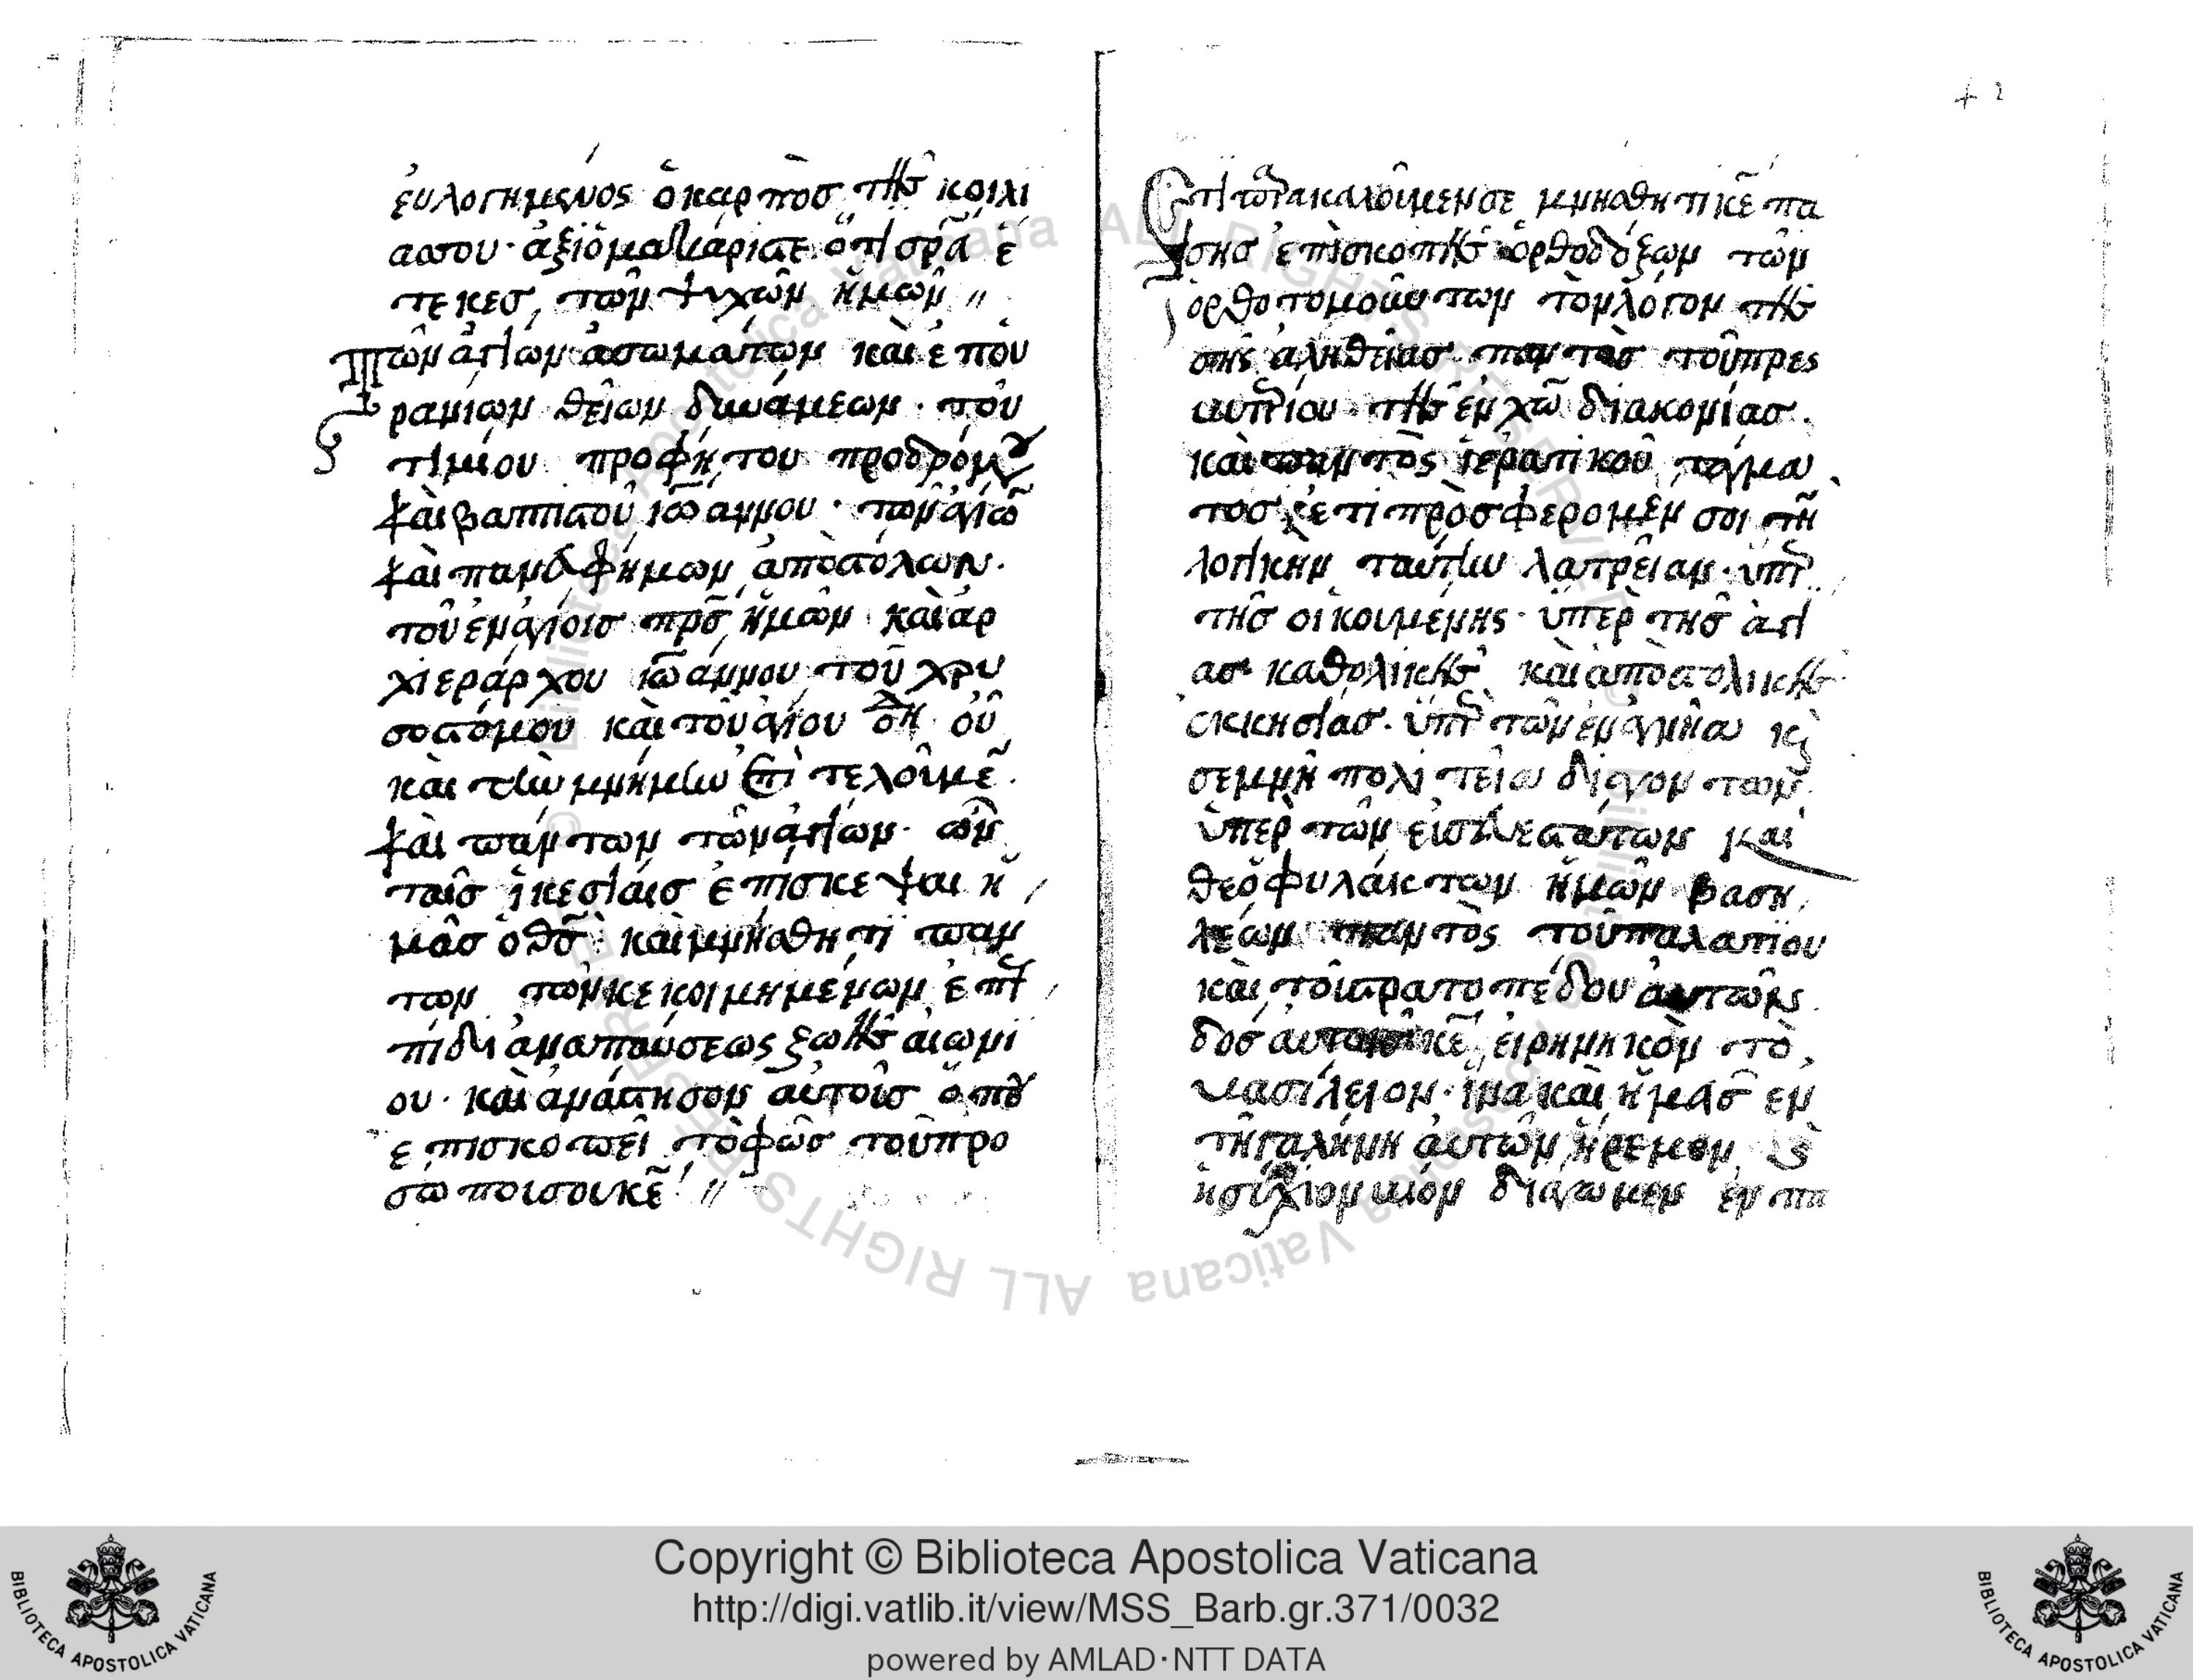 ευλογημενος ὁ καρπὸσ τῆσ κοιλί
ασ σου· ἀξιόμακάριστε ὅτι σρ̅α ἐ
τεκεσ, τῶν ψυχῶν ἡμῶν //
τῶν ἁγίων ἀσωμάτων καὶ ἐπου
ρανιων θείων δυνάμεων· του
τιμιου προφήτου προδρόμου
καὶ βαπτιστοῦ ἰω̅άννου· τῶν ἁγίω̅
καὶ πανευφήμων ἀποστόλων·
τοῦ ἐν ἁγίοισ πρ̅σ ἡμῶν καὶ ἀρ
χιεράρχου ἰω̅άννου τοῦ χρυ
σοστόμου καὶ τοῦ ἁγίου δη οὗ
καὶ τὴν μνήμην ἐπὶ τελοῦμε̅.
καὶ πάντων τῶν ἁγίων· ὧν
ταῖσ ἱκεσίαισ ἐπίσκεψαι ἡ
μᾶσ ὁ θσ̅· καὶ μνήσθητι παν
των τῶν κεκοιμημένων ἐπ ἐλ
πίδι ἀναπαύσεως ζωῆσ αἰωνί
ου· καὶ ἀνάπησον αὐτοὺσ ὅπου
επισκοπεῖ τὸ φῶσ τοῦ προ
σωποισου κε̅ //
+ 2
Ετι παρακαλοῦμεν σε μνησθητι κε̅ πα
σησ ἐπισκοπῆσ ὀρθοδόξων τῶν
ὀρθοτομούντων τὸν λόγον τῆσ
σῆς ἀληθείασ παντὸσ τοῦ πρεσ
βυτερίου τῆσ ἐν χω̅ διακονίασ.
καὶ παντὸς ἱερατικοῦ τάγμα
τοσ ετι πρὸσφερομέν σοι τη
λογικὴν ταύτην λατρείαν· ὑπερ
τῆσ οἰκουμένης· ὑπὲρ τῆσ ἁγί
ασ καθολικῆσ καὶ αποστολικῆσ
εκκησίασ· ὑπερ τῶν ἐν ἁγνῆα κ
σεμνῆ πολιτεία διάγοντων
ὑπὲρ τῶν εὐσεβεστάτων και
θεοφυλάκτων ἡμῶν βαση
λέων παντὸς τοῦ παλατίου
καὶ τοῦ στρατοπέδου αὐτῶν
δοσ αὐτοῖσ κε̅ εἰρηνηκὸν τὸ
βασίλειον· ἵνα καὶ ἡμᾶσ ἐν
τῆ γαλήνη αὐτῶν ἤρεμον κ
ἡσύχιον βίον διάγωμεν ἐν πα
Copyright © Biblioteca Apostolica Vaticana
http://digi.vatlib.it/view/MSS_Barb.gr.371/0032
powered by AMLAD·NTT DATA
BIBLIOTECA APOSTOLICA VATICANA
BIBLIOTECA APOSTOLICA VATICANA